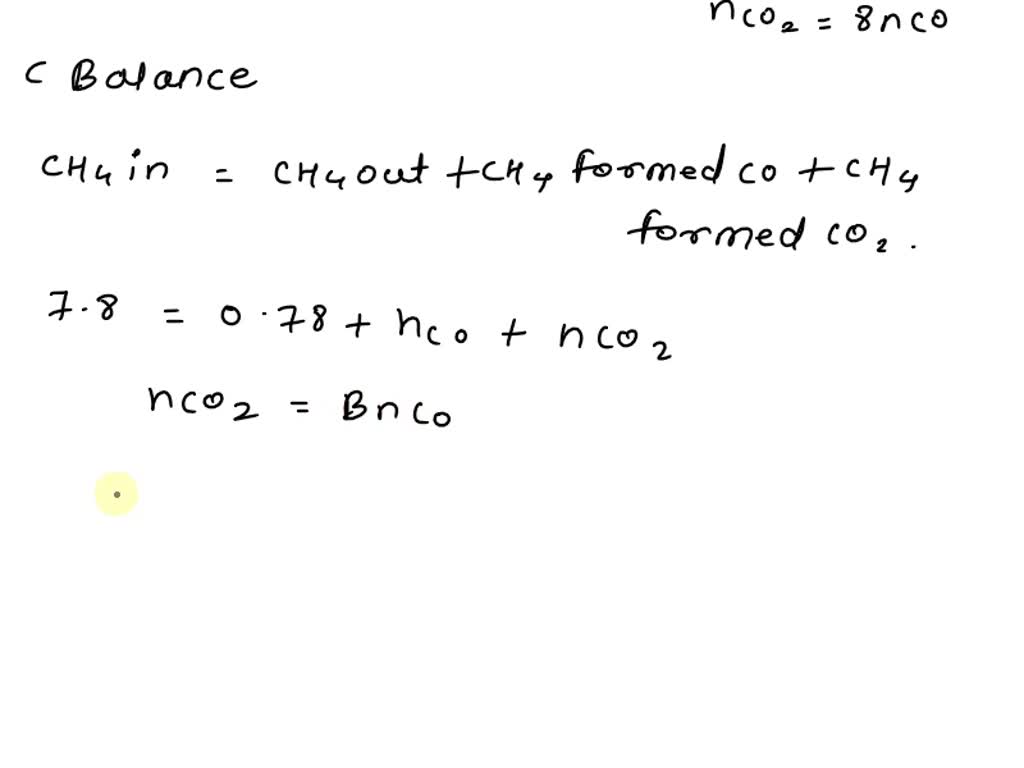 nCO₂ = 8nCO
C Balance
CH₄ in = CH₄ out + CH₄ formed CO + CH₄
formed CO₂.
7.8 = 0.78 + nCO + nCO₂
nCO₂ = BnCO